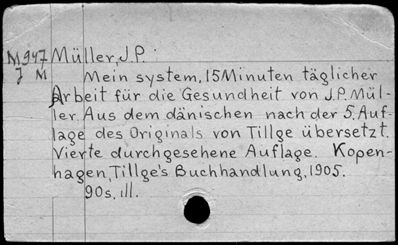 M947 Müller, J.P.
J M Mein system, 15 Minuten täglicher
Arbeit für die Gesundheit von J.P. Mül-
ler. Aus dem dänischen nach der 5. Auf-
lage des Originals von Tillge übersetzt.
Vierte durchgesehene Auflage. Kopen-
hagen, Tillge's Buchhandlung, 1905.
90s. ill.